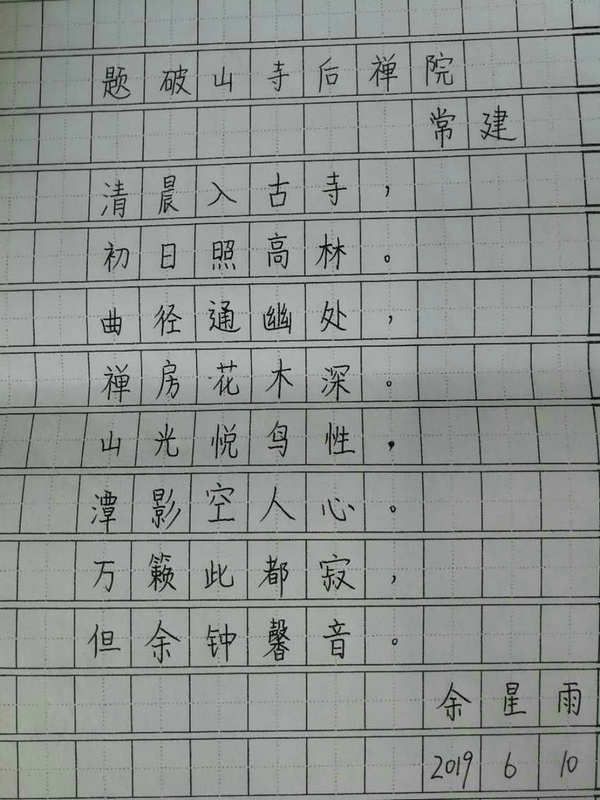 题破山寺后禅院
常建
清晨入古寺，
初日照高林。
曲径通幽处，
禅房花木深。
山光悦鸟性，
潭影空人心。
万籁此都寂，
但余钟馨音。
余星雨
2019 6 10